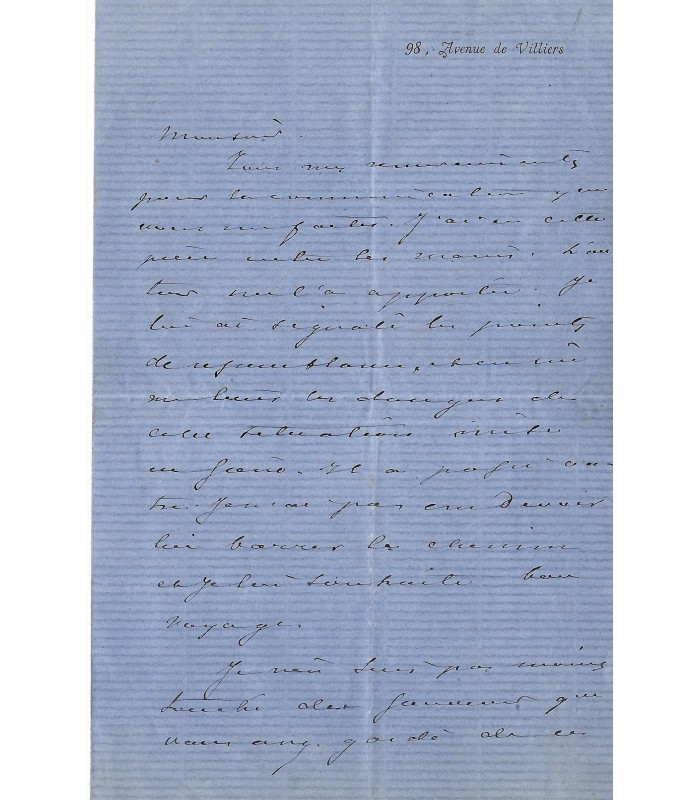 98, Avenue de Villiers
Monsieur.
Tous mes remerciements
pour la communication que
vous me faites. J'ai eu cette
pièce entre les mains. L'au
teur me l'a apportée. Je
lui ai signalé les points
de ressemblance, et en
les dangers de
cette situation même
en . Il a passé ou
tre. Je n'ai pas cru devoir
lui barrer le chemin
et je lui souhaite bon
voyage.
Je n'en suis pas moins
touché du souvenir que
vous avez gardé de ce